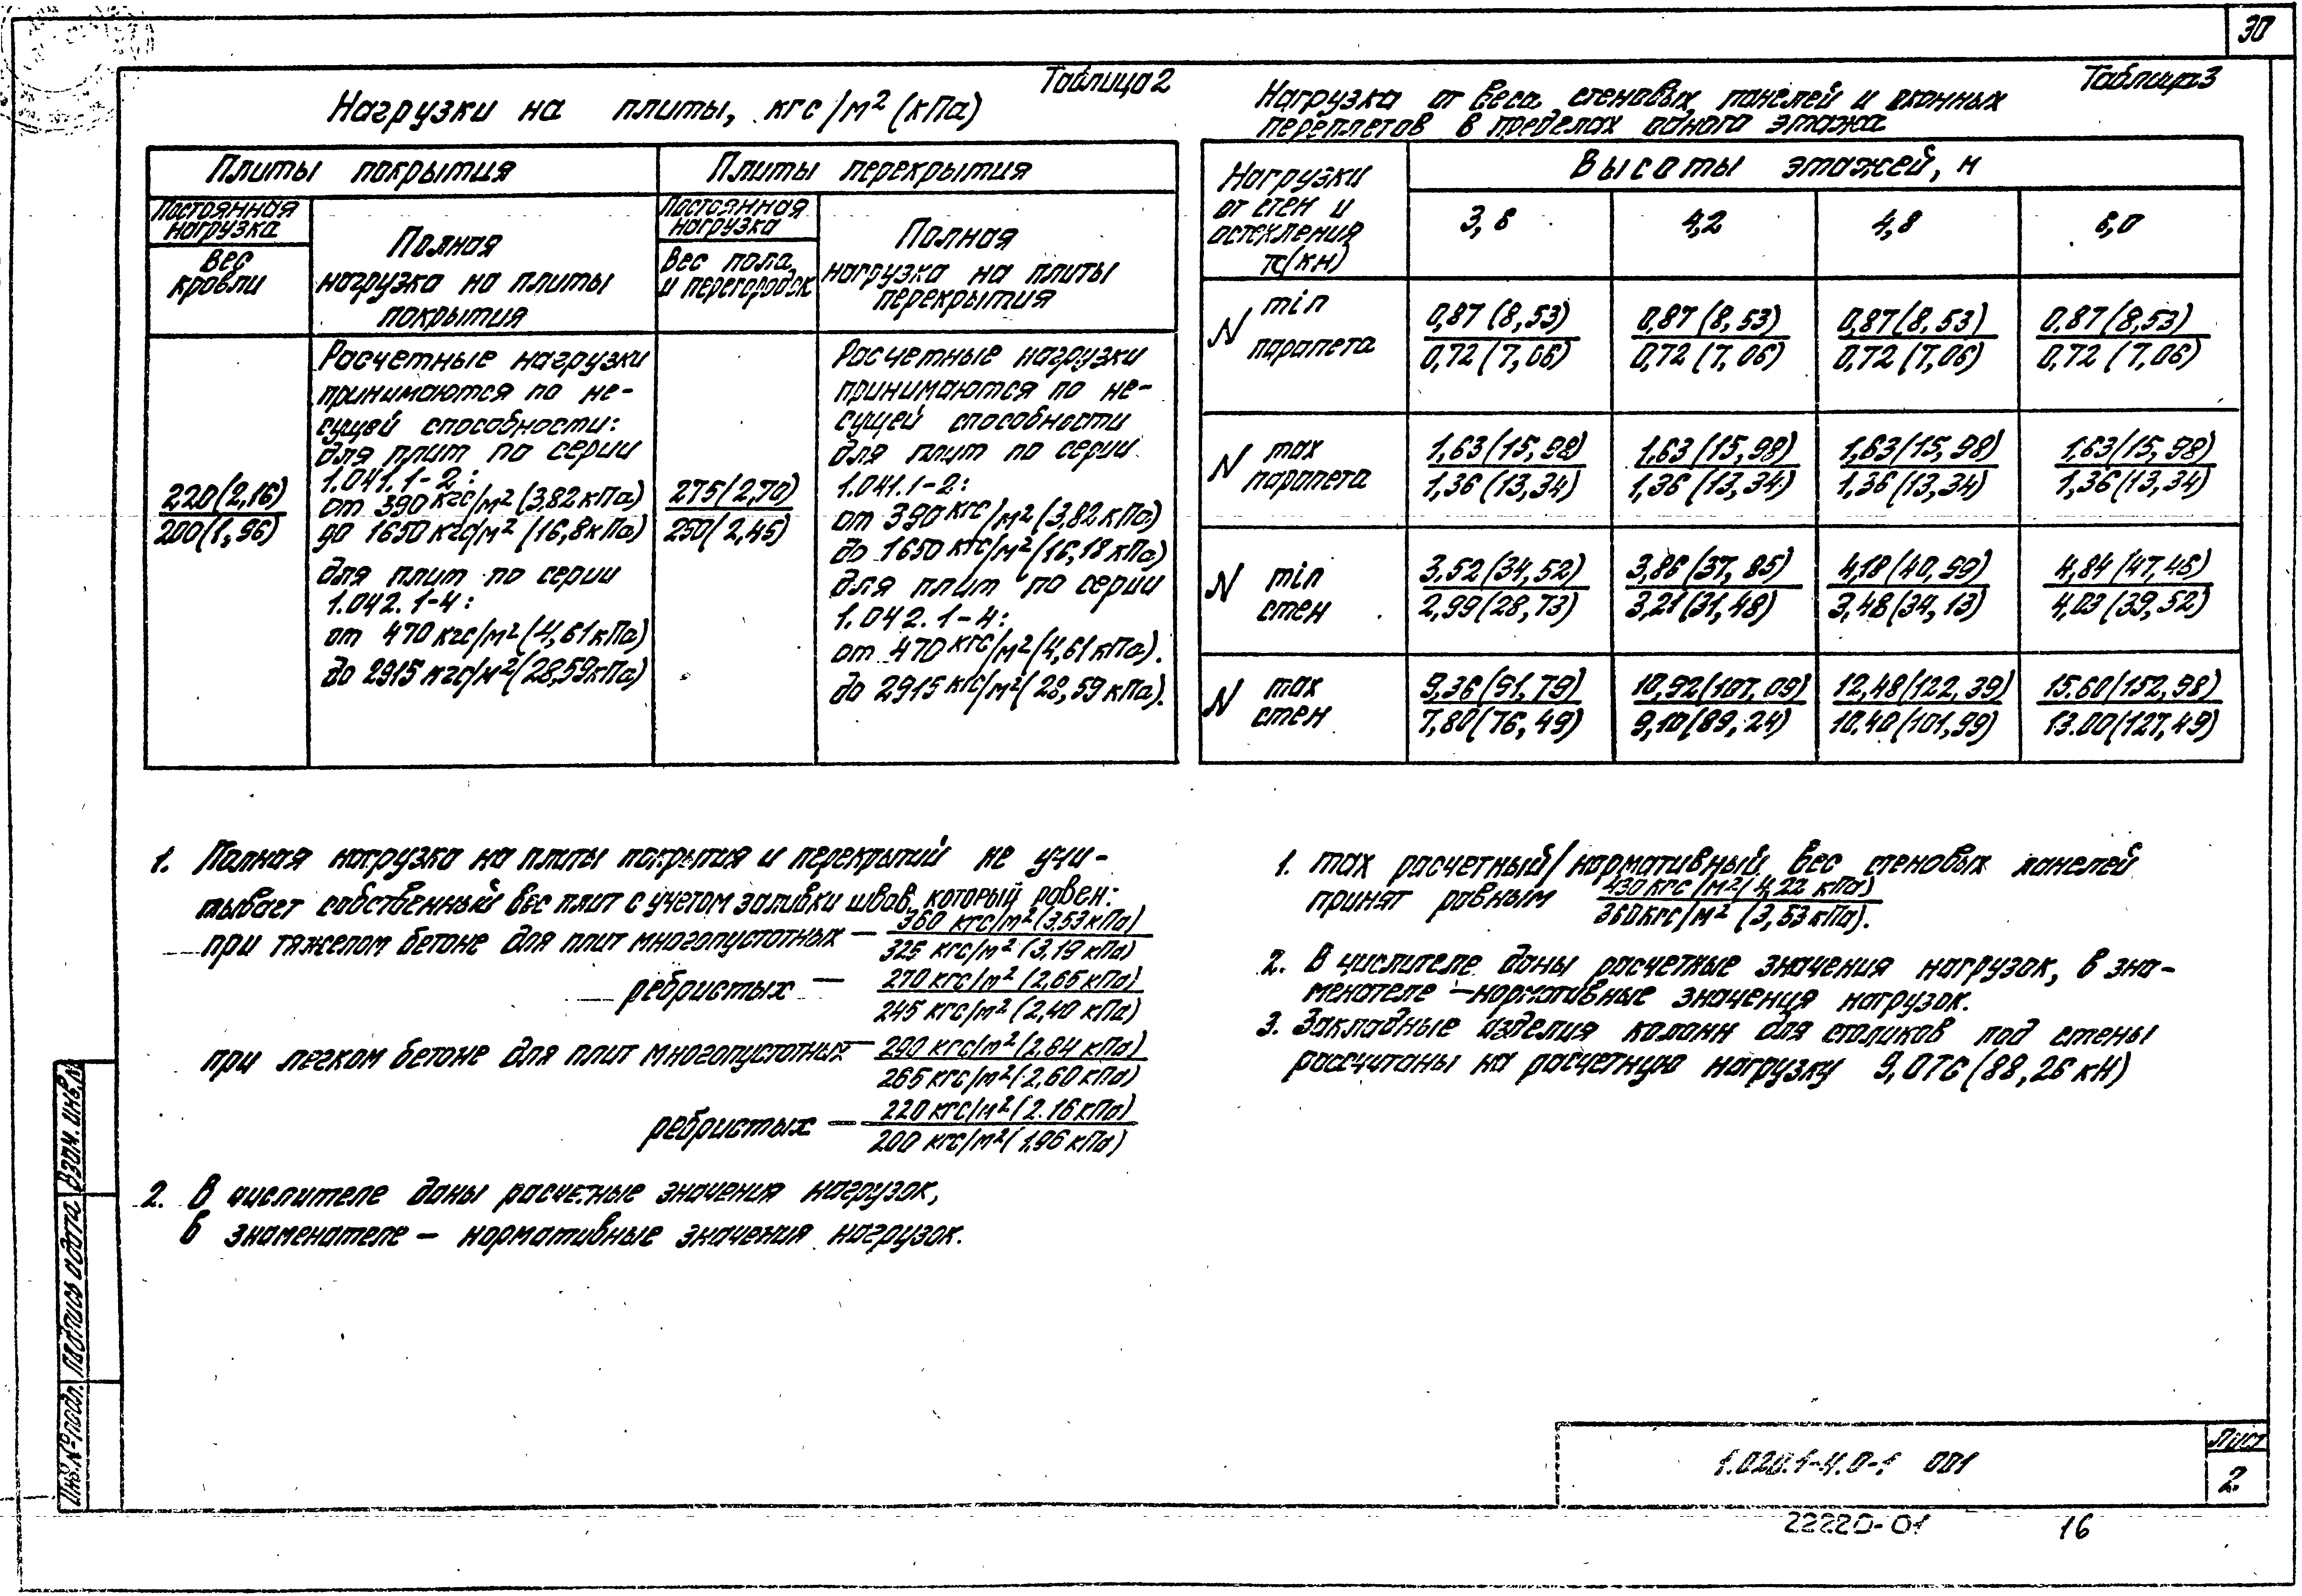 30
Таблица 2
Нагрузки на плиты, кгс/м² (кПа)
Плиты покрытия
Плиты перекрытия
Постоянная
нагрузка
Вес
кровли
Полная
нагрузка на плиты
покрытия
Постоянная
нагрузка
Вес пола
и перегородок
Полная
нагрузка на плиты
перекрытия
220(2,16)
200(1,96)
Расчетные нагрузки
принимаются по не-
сущей способности:
для плит по серии
1.041.1-2:
от 390 кгс/м² (3,82 кПа)
до 1650 кгс/м² (16,8 кПа)
для плит по серии
1.042.1-4:
от 470 кгс/м² (4,61 кПа)
до 2915 кгс/м² (28,59 кПа)
275(2,70)
250(2,45)
Расчетные нагрузки
принимаются по не-
сущей способности
для плит по серии
1.041.1-2:
от 390 кгс/м² (3,82 кПа)
до 1650 кгс/м² (16,18 кПа)
для плит по серии
1.042.1-4:
от 470 кгс/м² (4,61 кПа).
до 2915 кгс/м² (28,59 кПа).
1. Полная нагрузка на плиты покрытия и перекрытий не учи-
тывает собственный вес плит с учетом заливки швов, который равен:
при тяжелом бетоне для плит многопустотных — 360 кгс/м² (3.53 кПа)
325 кгс/м² (3,19 кПа)
ребристых — 270 кгс/м² (2,65 кПа)
245 кгс/м² (2,40 кПа)
при легком бетоне для плит многопустотных — 290 кгс/м² (2,84 кПа)
265 кгс/м² (2,60 кПа)
ребристых — 220 кгс/м² (2.16 кПа)
200 кгс/м² (1,96 кПа)
2. В числителе даны расчетные значения нагрузок,
в знаменателе — нормативные значения нагрузок.
Таблица 3
Нагрузка от веса стеновых панелей и оконных
переплетов в пределах одного этажа
Нагрузки
от стен и
остекления
тс(кн)
Высоты этажей, м
3,6 4,2 4,8 6,0
N min парапета
0,87 (8,53) 0,87 (8,53) 0,87 (8,53) 0,87 (8,53)
0,72 (7,06) 0,72 (7,06) 0,72 (7,06) 0,72 (7,06)
N max парапета
1,63(15,98) 1,63(15,98) 1,63(15,98) 1,63(15,98)
1,36 (13,34) 1,36 (13,34) 1,36 (13,34) 1,36 (13,34)
N min стен
3.52(34,52) 3,86(37,85) 4,18(40,99) 4,84(47,46)
2,99(28,73) 3,21(31,48) 3,48(34,13) 4,03(39,52)
N max стен
9,36(91,79) 10,92(107,09) 12,48(122,39) 15.60(152,98)
7,80(76,49) 9,10(89,24) 10.40(101,99) 13.00(127,49)
1. max расчетный/нормативный вес стеновых панелей
принят равным 430 кгс/м² (4,22 кПа)
360 кгс/м² (3,53 кПа).
2. В числителе даны расчетные значения нагрузок, в зна-
менателе — нормативные значения нагрузок.
3. Закладные изделия колонн для столиков под стены
рассчитаны на расчетную нагрузку 9,0тс (88,26 кН)
Инв.№подл. Подпись и дата Взам.инв.№
1.020.1-4.0-1 001
Лист
2
22220-01 16